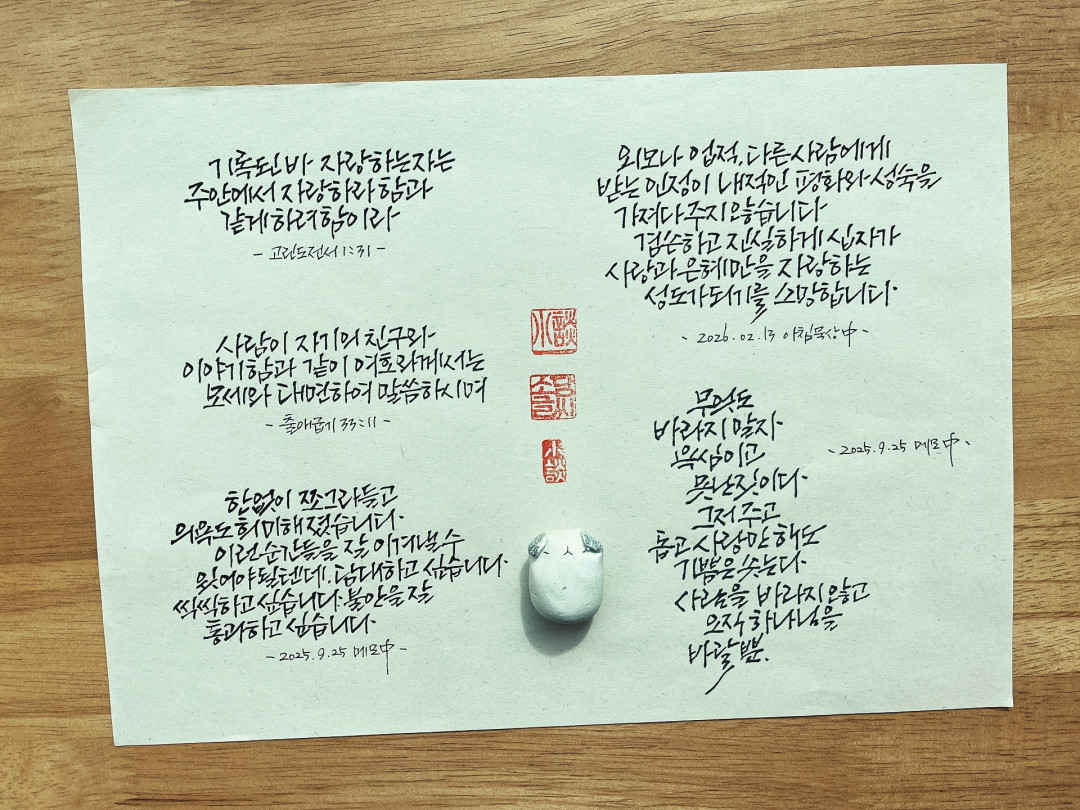 기록된 바 자랑하는 자는
주 안에서 자랑하라 함과
같게 하려 함이라
- 고린도전서 1:31 -
사람이 자기의 친구와
이야기함과 같이 여호와께서는
모세와 대면하여 말씀하시며
- 출애굽기 33:11 -
한없이 쪼그라들고
의욕도 희미해졌습니다.
이런 순간들을 잘 이겨낼 수
있어야 될텐데. 담대하고 싶습니다.
씩씩하고 싶습니다. 불안을 잘
통과하고 싶습니다.
- 2025.9.25 메모中 -
小談
소담
小談
외모나 업적, 다른 사람에게
받는 인정이 내적인 평화와 성숙을
가져다 주지 않습니다
겸손하고 진실하게 십자가
사랑과 은혜만을 자랑하는
성도가 되기를 소망합니다.
- 2026.02.13 아침묵상中 -
무엇도
바라지 말자
욕심이고
못난 짓이다.
그저 주고
돕고 사랑만 해도
기쁨은 솟는다.
사람을 바라지 않고
오직 하나님을
바랄 뿐.
- 2025.9.25 메모中 -